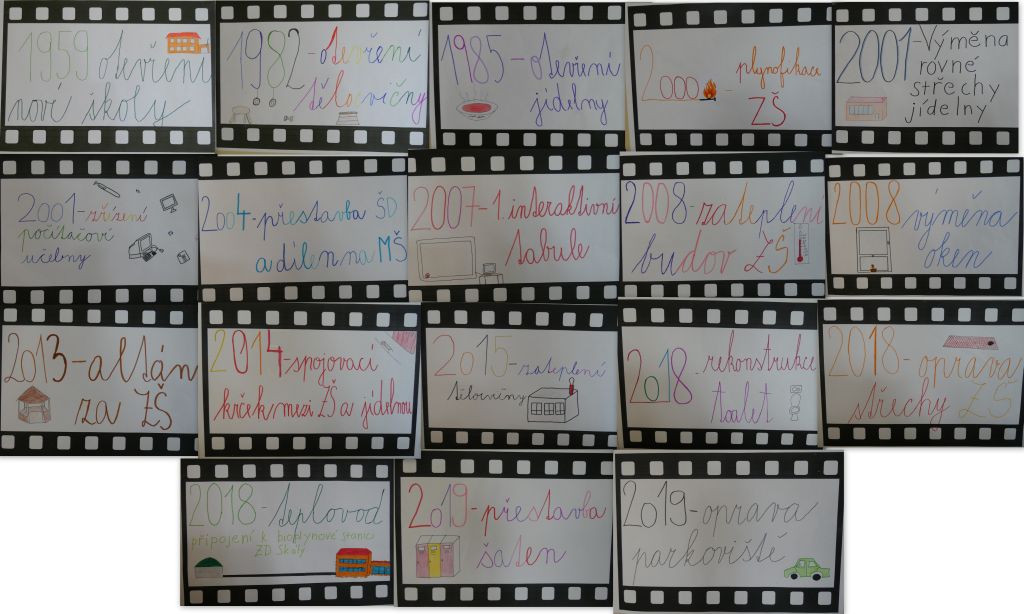 1959 otevření
nové školy
1982-otevření
tělocvičny
1985-otevření
jídelny
2000 - plynofikace
ZŠ
2001-Výměna
rovné
střechy
jídelny
2001-zřízení
počítačové
učebny
2004-přestavba ŠD
a dílen na MŠ
2007-1. interaktivní
tabule
2008-zateplení
budov ZŠ
2008 výměna
oken
2013-altán
za ZŠ
2014-spojovací
krček mezi ZŠ a jídelnou
2015-zateplení
tělocvičny
2018-rekonstrukce
toalet
2018-oprava
střechy ZŠ
2018-teplovod
připojení k bioplynové stanici
ZD Skály
2019-přestavba
šaten
2019-oprava
parkoviště